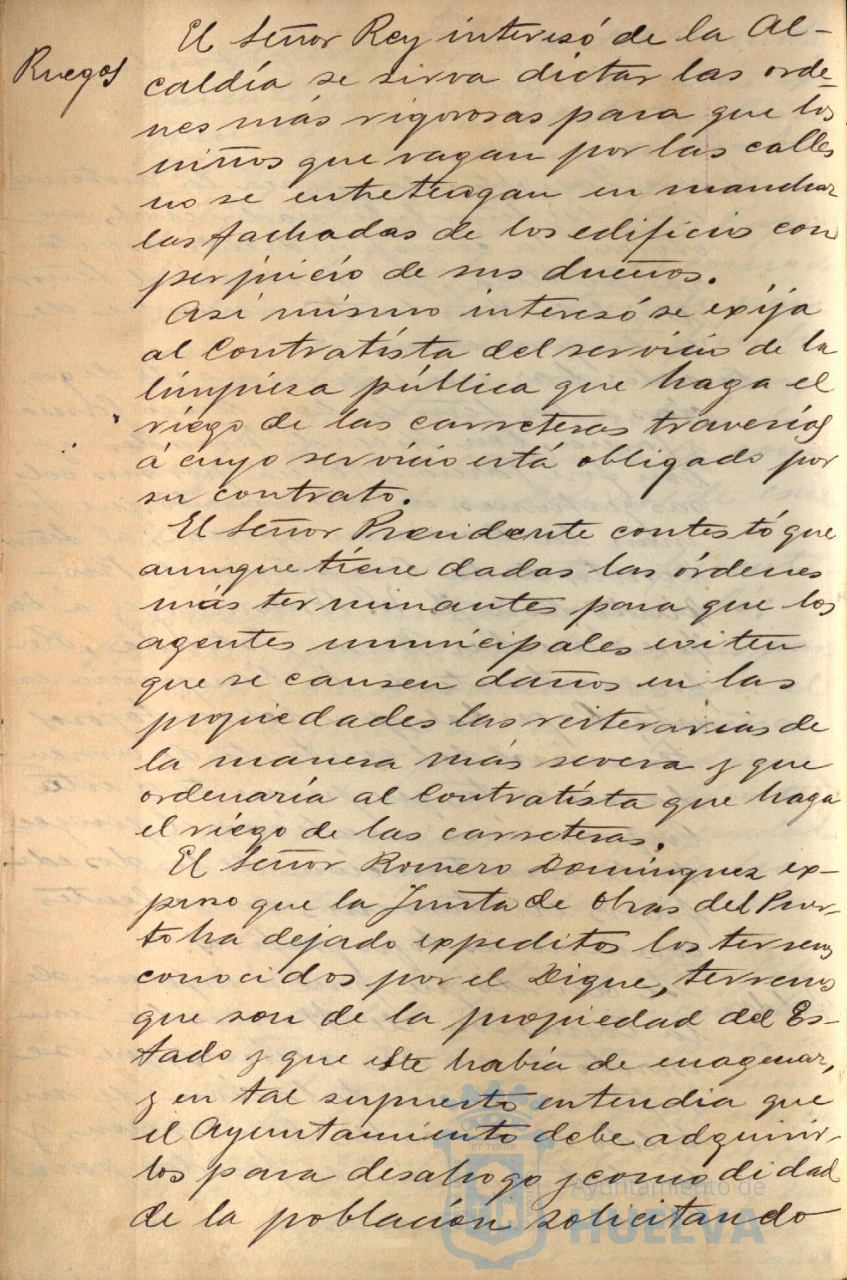 Ruegos
El Señor Rey interesó de la Al-
caldía se sirva dictar las orde-
nes más rigorosas para que los
niños que vagan por las calles
no se entretengan en manchar
las fachadas de los edificios con
perjuicio de sus dueños.
Asi mismo interesó se exija
al Contratista del servicio de la
limpieza pública que haga el
riego de las carreteras travesías
á cuyo servicio está obligado por
su contrato.
El Señor Presidente contestó que
aunque tiene dadas las órdenes
más terminantes para que los
agentes municipales eviten
que se causen daños en las
propiedades las reiterarias de
la manera más severa y que
ordenaría al Contratista que haga
el riego de las carreteras.
El Señor Romero Domínguez ex-
puso que la Junta de Obras del Puer-
to ha dejado expeditos los terrenos
conocidos por el Dique, terrenos
que son de la propiedad del Es-
tado y que este había de enagenar,
y en tal supuesto entendia que
el Ayuntamiento debe adquirir-
los para desahogo y comodidad
de la población solicitando
Ayuntamiento de
HUELVA